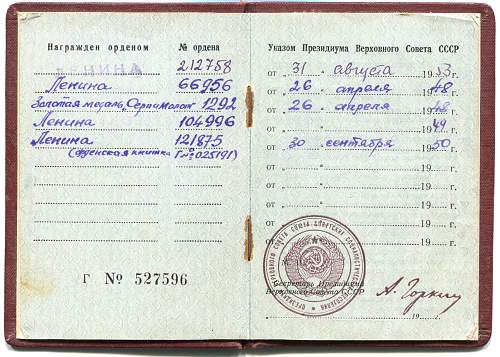 Награжден орденом
№ ордена
ЛЕНИНА 212758
Ленина 66956
Золотая медаль „Серп и Молот 1292
Ленина 104996
Ленина 121875
(орденская книжка Г № 025191)
Г № 527596
Указом Президиума Верховного Совета СССР
от „31" августа 1953 г.
от „26" апреля 1948 г.
от „26" апреля 1948 г.
от „ " 1949 г.
от „30" сентября 1950 г.
от „ " 19 г.
от „ " 19 г.
от „ " 19 г.
от „ " 19 г.
от 19 г.
Секретарь Президиума
Верховного Совета СССР
А. Горкин
19 г.